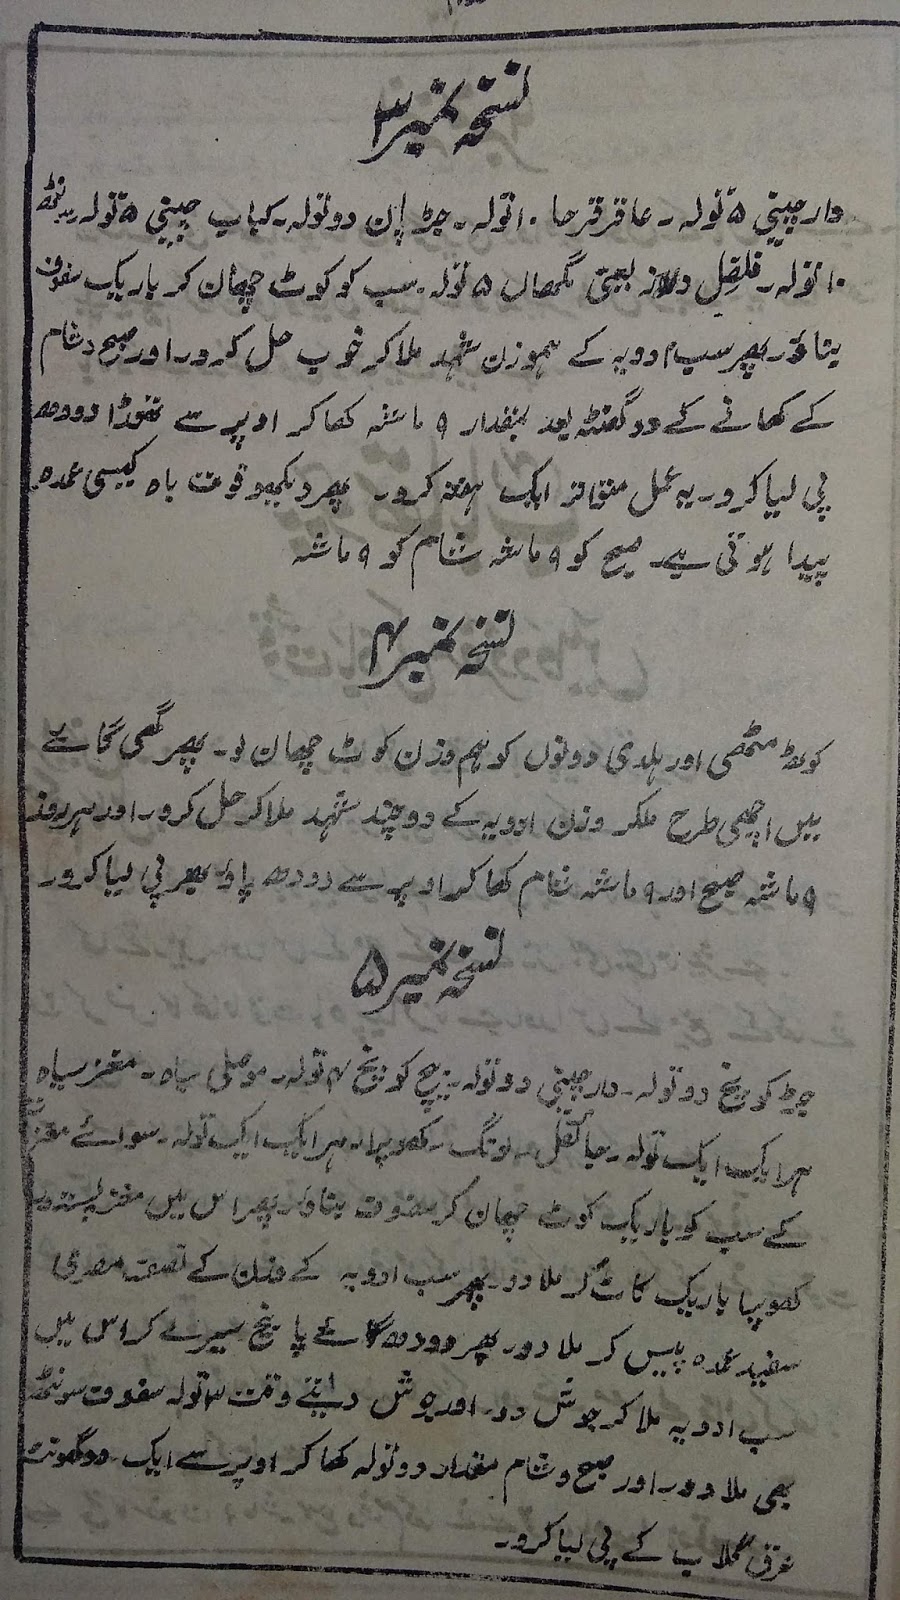 نسخہ نمبر ۳
دارچینی ۵ تولہ۔ عاقرقرحا ۱۰ تولہ۔ جڑ پان دو تولہ۔ کباب چینی ۵ تولہ۔ سونٹھ
۱۰ تولہ۔ فلفل دراز یعنی مگھاں ۵ تولہ۔ سب کو کوٹ چھان کر باریک سفوف
بناؤ۔ پھر سب ادویہ کے ہموزن شہد ملا کر خوب حل کرو۔ اور صبح و شام
کے کھانے کے دو گھنٹہ بعد بمقدار ۹ ماشہ کھا کر اوپر سے تھوڑا دودھ
پی لیا کرو۔ یہ عمل متواتر ایک ہفتہ کرو۔ پھر دیکھو قوت باہ کیسی عمدہ
پیدا ہوتی ہے۔ صبح کو ۹ ماشہ شام کو ۹ ماشہ
نسخہ نمبر ۴
کوٹھ مٹھی اور ہلدی دونوں کو ہم وزن کوٹ چھان لو۔ پھر گھی گائے
میں اچھی طرح ملکر وزن ادویہ کے دو چند شہد ملا کر حل کرو۔ اور ہر روز
۹ ماشہ صبح اور ۹ ماشہ شام کھا کر اوپر سے دودھ پاؤ بھر پی لیا کرو۔
نسخہ نمبر ۵
جڑ کونچ دو تولہ۔ دارچینی دو تولہ۔ بیج کونچ ۴ تولہ۔ موصلی سیاہ۔ مغز سیاہ
ہر ایک ایک تولہ۔ جائفل۔ لونگ۔ کھوپرا۔ ہر ایک ایک تولہ۔ سوائے مغز
کے سب کو باریک کوٹ چھان کر سفوف بناؤ۔ پھر اس میں مغز پستہ و
کھوپرا باریک کاٹ کر ملا دو۔ پھر سب ادویہ کے وزن کے نصف مصری
سفید عمدہ پیس کر ملا دو۔ پھر دودھ گائے پانچ سیر لے کر اس میں
سب ادویہ ملا کر جوش دو۔ اور جوش دیتے وقت ۳ تولہ سفوف سونٹھ
بھی ملا دو۔ اور صبح و شام مقدار دو تولہ کھا کر اوپر سے ایک دو گھونٹ
عرق گلاب کے پی لیا کرو۔